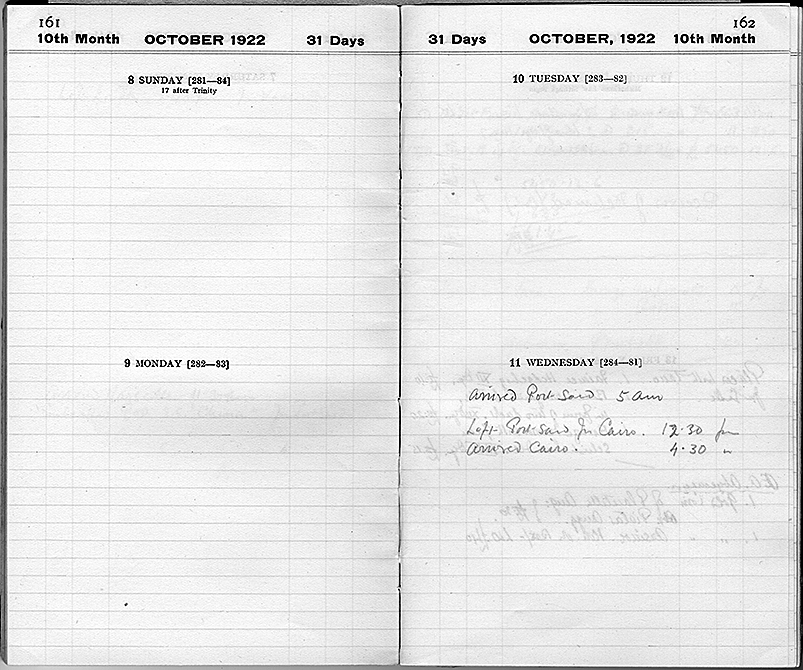 161
10th Month OCTOBER 1922 31 Days
8 SUNDAY [281—84]
17 after Trinity
9 MONDAY [282—83]
162
31 Days OCTOBER, 1922 10th Month
10 TUESDAY [283—82]
11 WEDNESDAY [284—81]
Arrived Port-Said 5 am
Left Port-Said for Cairo. 12.30 pm
Arrived Cairo. 4.30 "